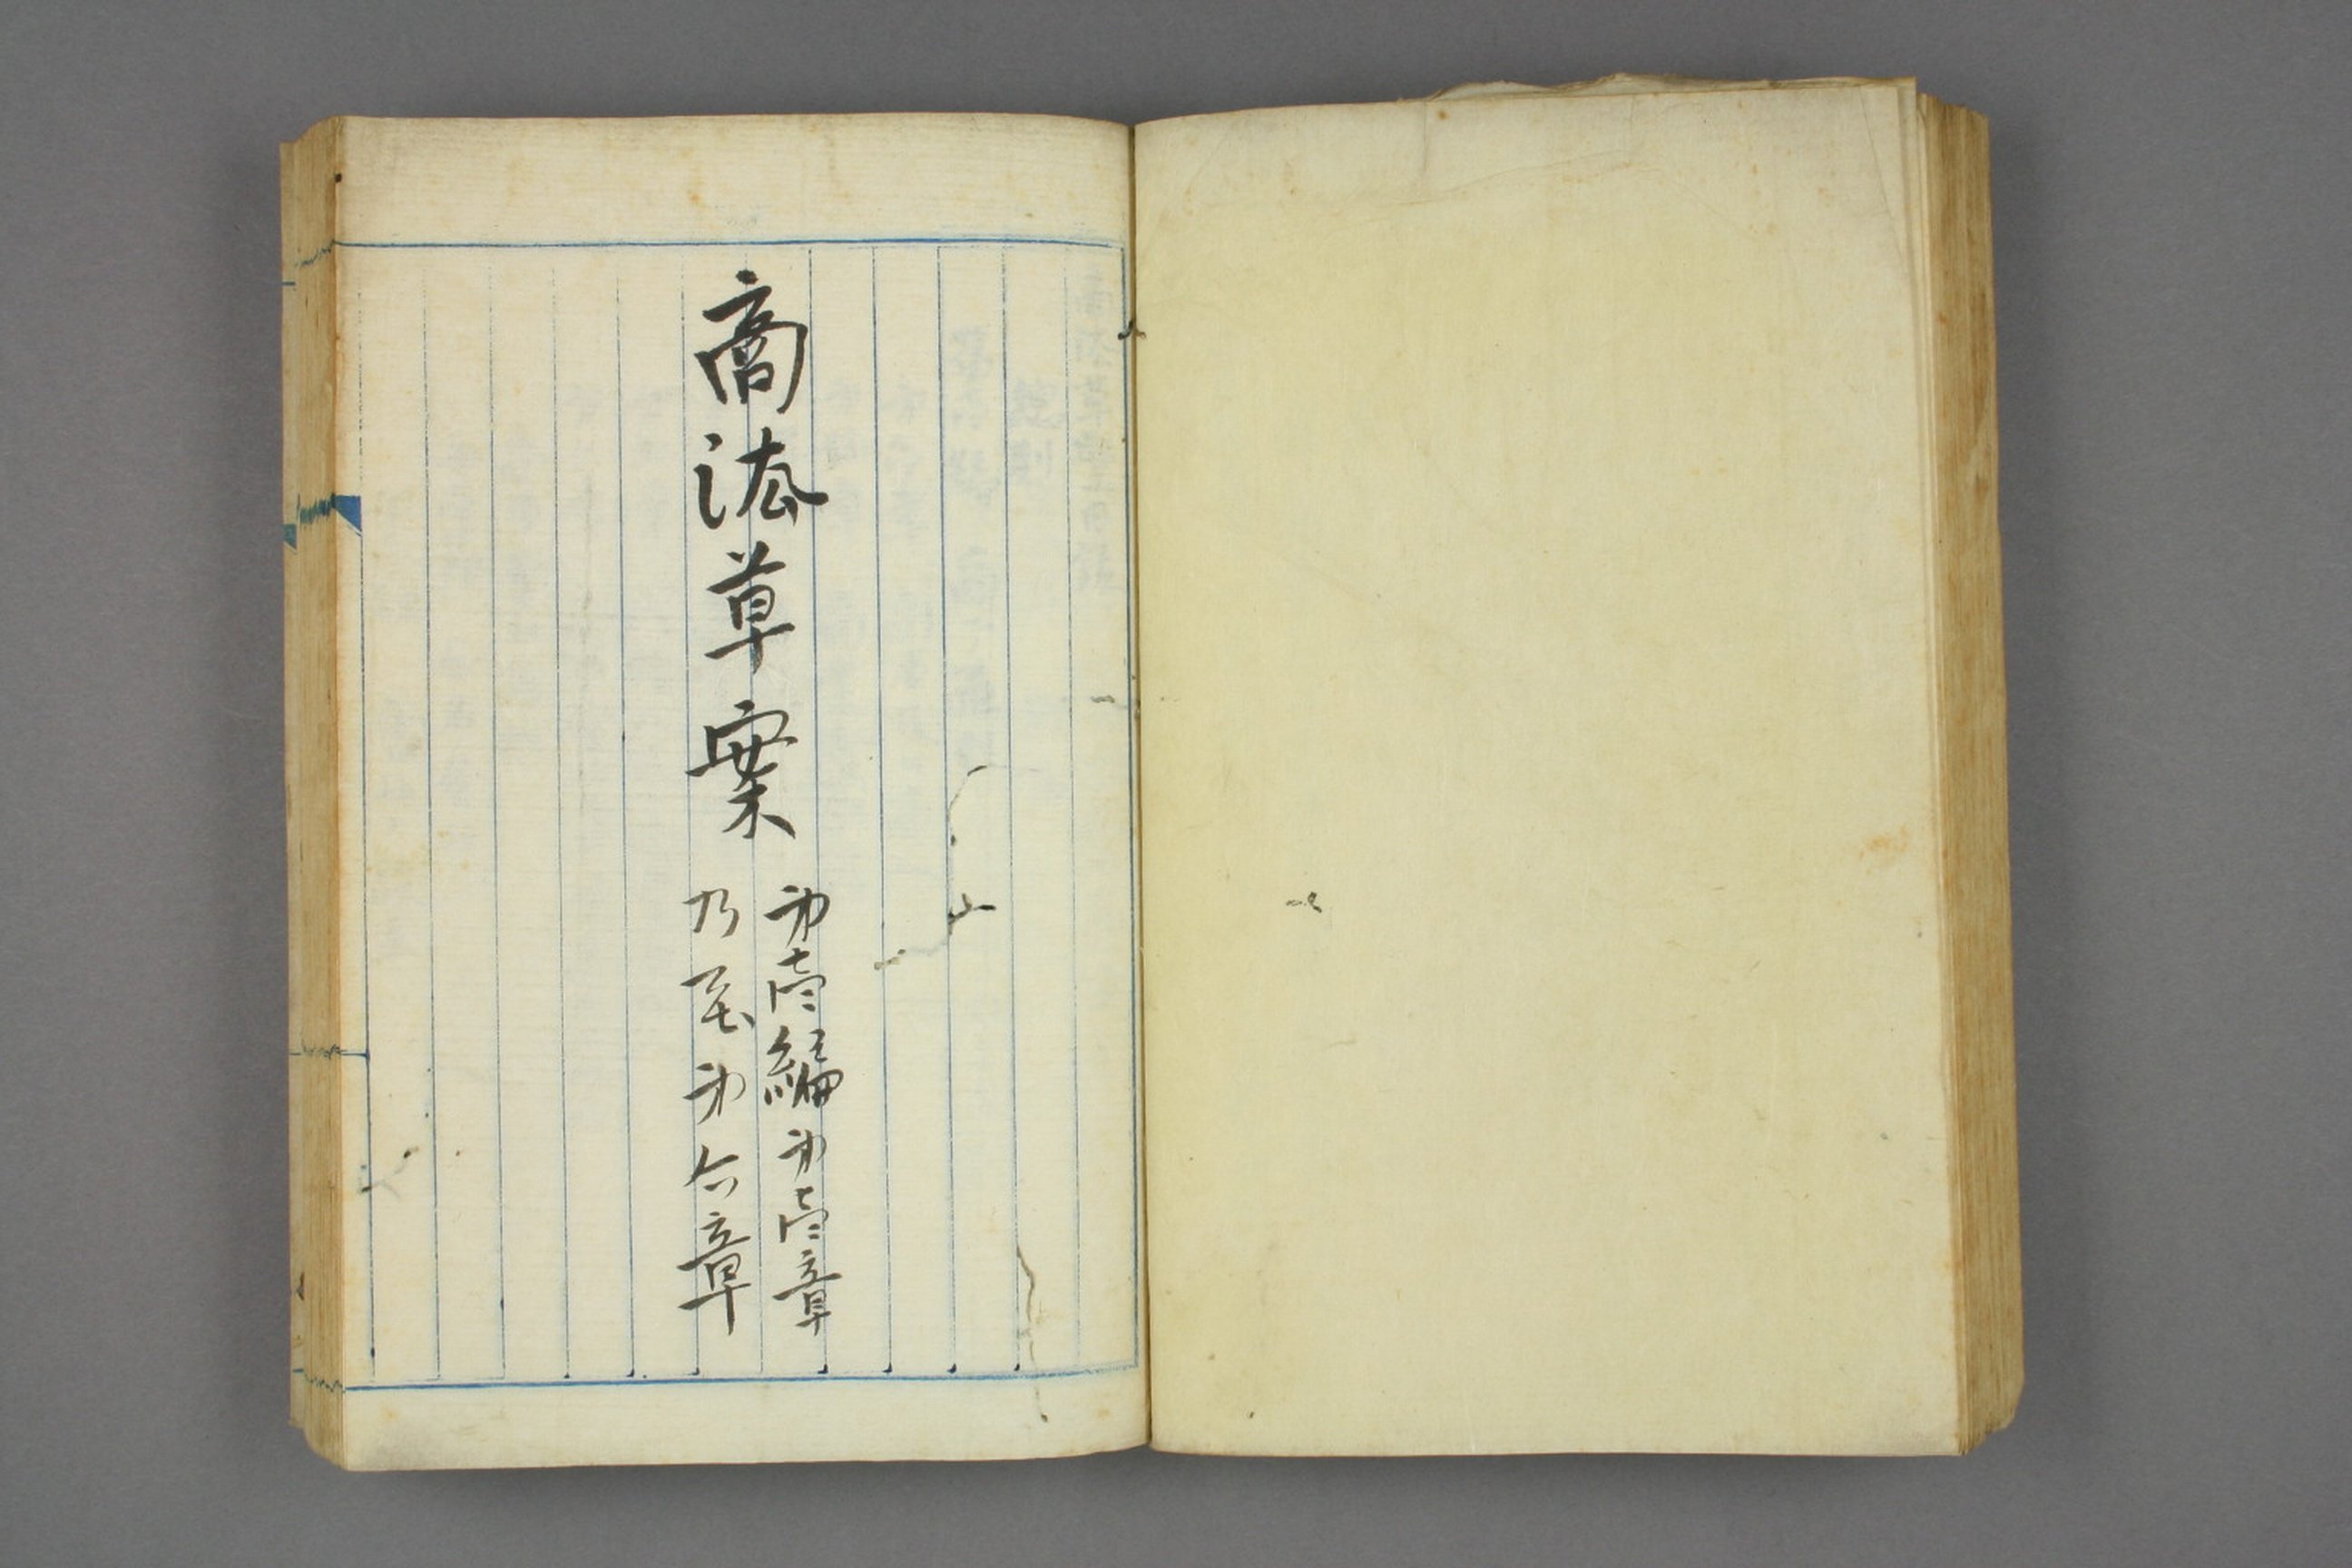 商法草案
第壱編第壱章
乃至第六章